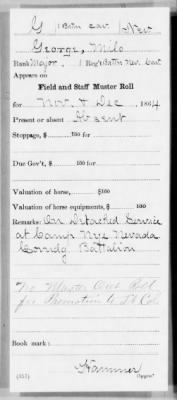 G | 1 Batn Cav. | Nev
George, Milo
Rank Major, 1 Reg't Battn Nev. Cav.
Appears on
Field and Staff Muster Roll
for Nov. & Dec, 1864
Present or absent Absent
Stoppage, $ 100 for
Due Gov't, $ 100 for
Valuation of horse, $ 100
Valuation of horse equipments, $ 100
Remarks: On Detached Service
at Camp Nye Nevada
Comdg Battalion
No Muster Out Roll
for Promotion to Lt Col.
Book mark:
Hammer
(357) Copyist.